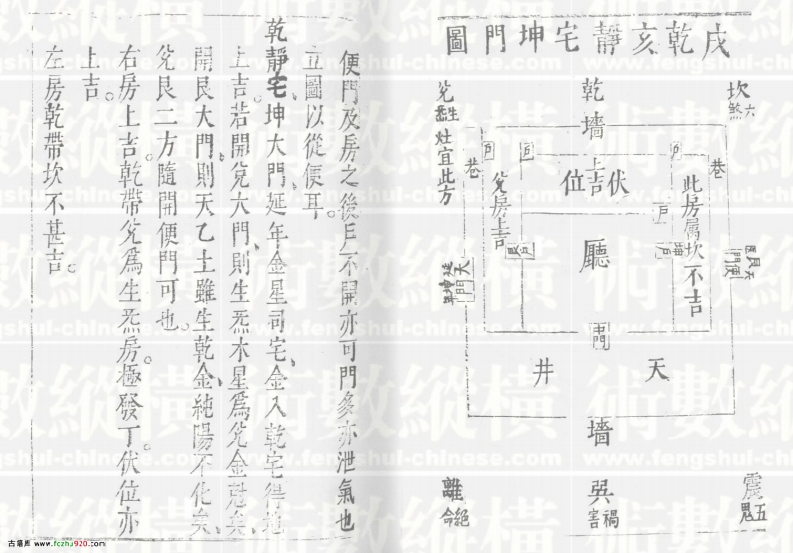 戌乾亥靜宅坤門圖
坎
六煞
乾
墻
兌
生炁
灶宜此方
巷
巷
伏位
上吉
戶
此房属坎不吉
坤戶
兌房上吉
艮戶
廳
門
天
井
艮
天
便門
延年
天門
墻
震
五鬼
巽
禍害
離
絕命
便門及房之後戶不開亦可門多亦泄氣也
立圖以從便耳。
乾靜宅、坤大門、延年金星司宅、金入乾宅得地
上吉。若開兌大門、則生炁木星爲兌金尅矣、
開艮大門、則天乙土雖生乾金、純陽不化矣、
兌艮二方隨開便門可也。
右房上吉。乾帶兌爲生炁房。極發丁。伏位亦
上吉。
左房乾帶坎不甚吉。
古籍库 www.fczhu920.com
術數縱橫
www.fengshui-chinese.com